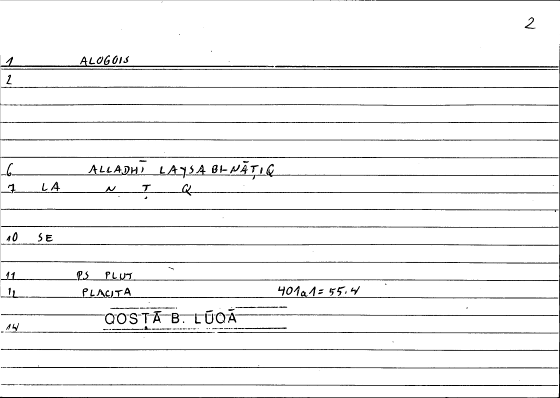 2
1 ALOGOIS
2
6 ALLADHĪ LAYSA BI-NĀṬIQ
7 LA N Ṭ Q
10 SE
11 PS PLUT
12 PLACITA 401a1=55.4
14 QOSṬĀ B. LŪQĀ